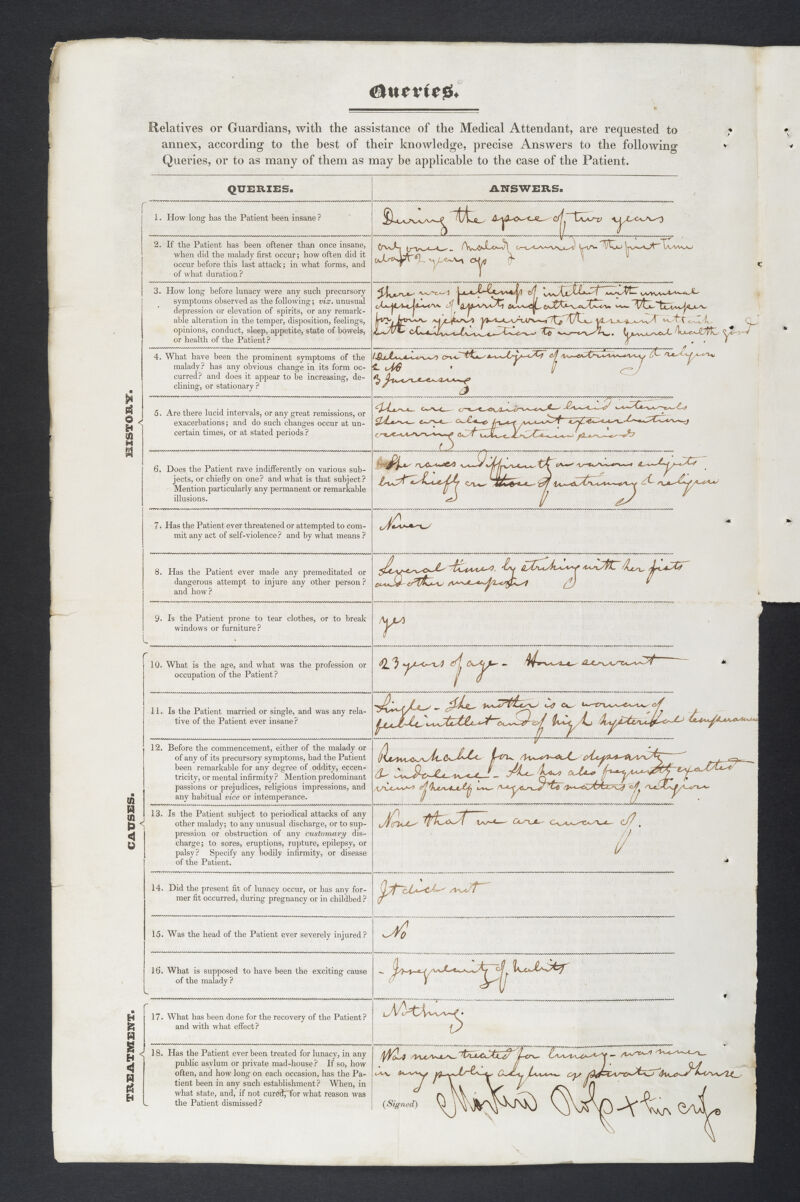 Queries.
Relatives or Guardians, with the assistance of the Medical Attendant, are requested to
annex, according to the best of their knowledge, precise Answers to the following
Queries, or to as many of them as may be applicable to the case of the Patient.
QUERIES.
ANSWERS.
HISTORY.
1. How long has the Patient been insane?
During the space of two years
2. If the Patient has been oftener than once insane,
when did the malady first occur; how often did it
occur before this last attack; in what forms, and
of what duration?
only once - Malady occurred for the first time
about 2 years ago
3. How long before lunacy were any such precursory
symptoms observed as the following; viz. unusual
depression or elevation of spirits, or any remark-
able alteration in the temper, disposition, feelings,
opinions, conduct, sleep, appetite, state of bowels,
or health of the Patient?
There was feebleness of intellect with unusual
depression of spirits and alteration in the temper
for four years previous to the present attack
with disinclination to work. General health good
4. What have been the prominent symptoms of the
malady? has any obvious change in its form oc-
curred? and does it appear to be increasing, de-
clining, or stationary?
1 Delusions on the subjects of matrimony & religion
2 No
3 Increasing
5. Are there lucid intervals, or any great remissions, or
exacerbations; and do such changes occur at un-
certain times, or at stated periods?
There are occasional lucid intervals
There are also frequent exacerbations
occurring at uncertain periods
6. Does the Patient rave indifferently on various sub-
jects, or chiefly on one? and what is that subject?
Mention particularly any permanent or remarkable
illusions.
She raves indifferently on various subjects
but chiefly on those of matrimony & religion
7. Has the Patient ever threatened or attempted to com-
mit any act of self-violence? and by what means?
Never
8. Has the Patient ever made any premeditated or
dangerous attempt to injure any other person?
and how?
Several times by striking with her fists
and other weapons
9. Is the Patient prone to tear clothes, or to break
windows or furniture?
yes
CAUSES.
10. What is the age, and what was the profession or
occupation of the Patient?
23 years of age - House servant
11. Is the Patient married or single, and was any rela-
tive of the Patient ever insane?
Single - The mother is a woman of
feeble intellect and of high hysterical temperament
12. Before the commencement, either of the malady or
of any of its precursory symptoms, had the Patient
been remarkable for any degree of oddity, eccen-
tricity, or mental infirmity? Mention predominant
passions or prejudices, religious impressions, and
any habitual vice or intemperance.
Remarkable for moral depravity
& indolence - She has also frequently exalted
views of herself in regard to matters of religion
13. Is the Patient subject to periodical attacks of any
other malady; to any unusual discharge, or to sup-
pression or obstruction of any customary dis-
charge; to sores, eruptions, rupture, epilepsy, or
palsy? Specify any bodily infirmity, or disease
of the Patient.
None that we are aware of.
14. Did the present fit of lunacy occur, or has any for-
mer fit occurred, during pregnancy or in childbed?
It did not
15. Was the head of the Patient ever severely injured?
No
16. What is supposed to have been the exciting cause
of the malady?
- Irregularity of habits
TREATMENT.
17. What has been done for the recovery of the Patient?
and with what effect?
Nothing.
18. Has the Patient ever been treated for lunacy, in any
public asylum or private mad-house? If so, how
often, and how long on each occasion, has the Pa-
tient been in any such establishment? When, in
what state, and, if not cured, for what reason was
the Patient dismissed?
Was never treated for lunacy - was never
in any public asylum or private madhouse
(Signed) Martin Ross + his